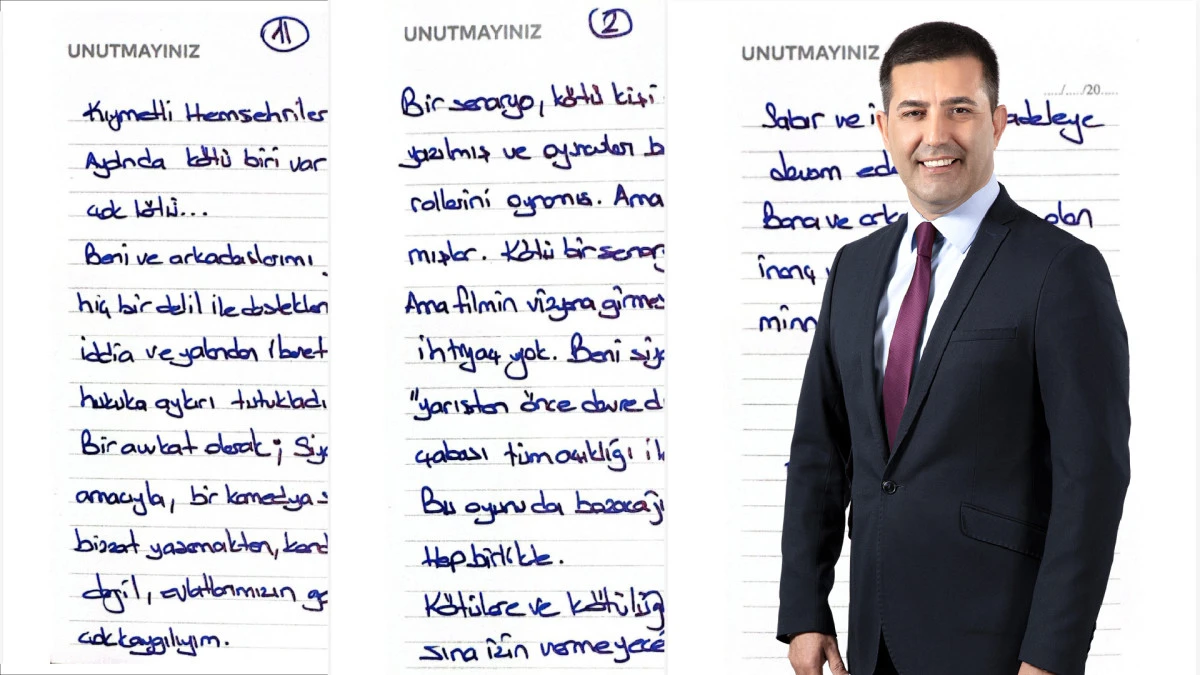 UNUTMAYINIZ
11
Kıymetli Hemşehriler
Aydında kötü biri var
çok kötü...
Beni ve arkadaşlarımı
hiç bir delil ile desteklen
iddia ve yalandan ibaret
hukuka aykırı tutukladı
Bir avukat olarak; Siy
amacıyla, bir komedya s
bizzat yaşamaktan, kend
değil, evlatlarımızın ge
çok kaygılıyım.
UNUTMAYINIZ
2
Bir senaryo, kötü kişi
yazılmış ve oyuncular b
rollerini oynamış. Ama
mışlar. Kötü bir senary
Ama filmin vizyona girmes
ihtiyaç yok. Beni siy
"yarıştan önce devre d
çabası tüm açıklığı il
Bu oyunu da bozacağı
Hep birlikte.
Kötülere ve kötülüğ
sına izin vermeyece
UNUTMAYINIZ
..../..../20.....
Sabır ve i adeleye
devam ed
Bana ve ark olan
inanç
minn